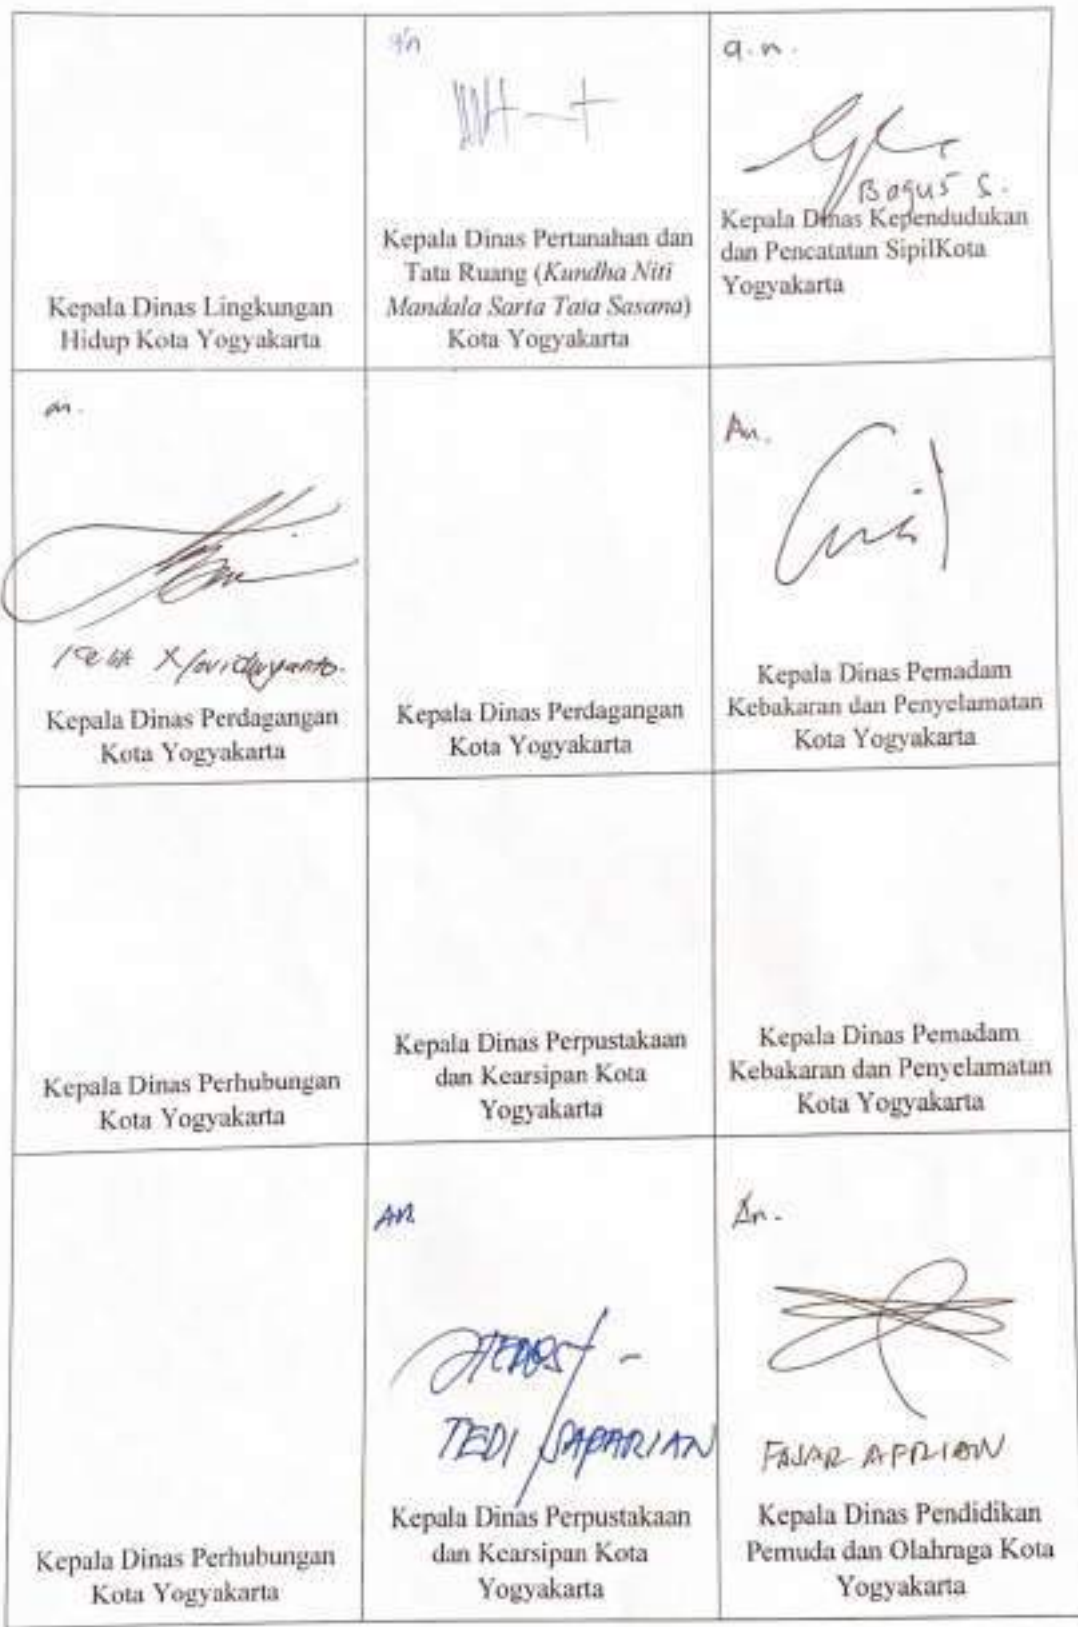 Kepala Dinas Lingkungan
Hidup Kota Yogyakarta
a'n
Kepala Dinas Pertanahan dan
Tata Ruang (Kundha Niti
Mandala Sarta Tata Sasana)
Kota Yogyakarta
a.n.
Bagus S.
Kepala Dinas Kependudukan
dan Pencatatan SipilKota
Yogyakarta
an.
Kepala Dinas Perdagangan
Kota Yogyakarta
Kepala Dinas Perdagangan
Kota Yogyakarta
An.
Kepala Dinas Pemadam
Kebakaran dan Penyelamatan
Kota Yogyakarta
Kepala Dinas Perhubungan
Kota Yogyakarta
Kepala Dinas Perpustakaan
dan Kearsipan Kota
Yogyakarta
Kepala Dinas Pemadam
Kebakaran dan Penyelamatan
Kota Yogyakarta
Kepala Dinas Perhubungan
Kota Yogyakarta
An
TEDI SAPARIAN
Kepala Dinas Perpustakaan
dan Kearsipan Kota
Yogyakarta
An.
FAJAR APRIAN
Kepala Dinas Pendidikan
Pemuda dan Olahraga Kota
Yogyakarta